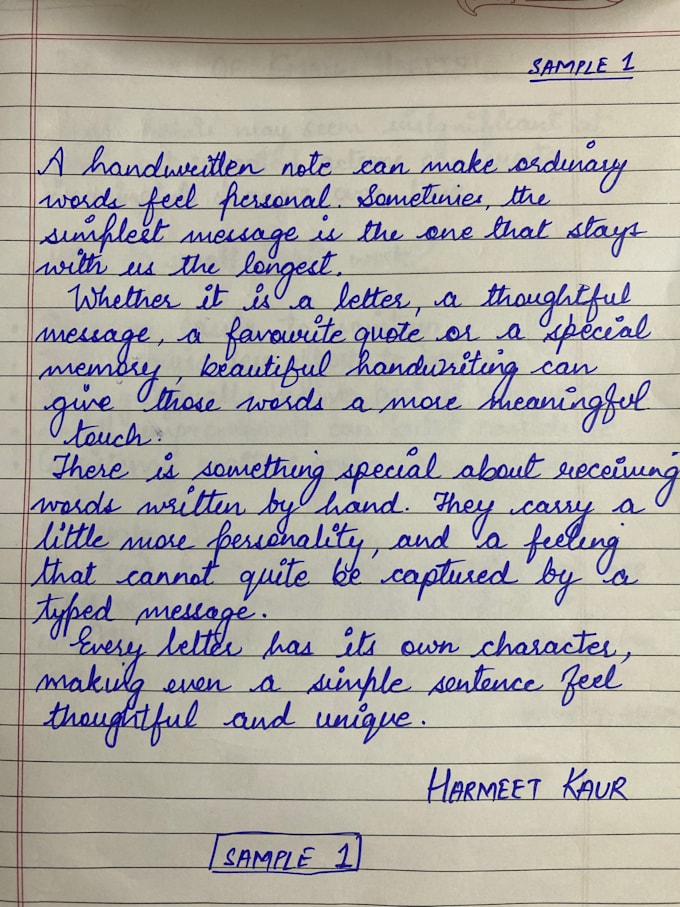 SAMPLE 1
A handwritten note can make ordinary
words feel personal. Sometimes, the
simplest message is the one that stays
with us the longest.
Whether it is a letter, a thoughtful
message, a favourite quote or a special
memory, beautiful handwriting can
give those words a more meaningful
touch.
There is something special about receiving
words written by hand. They carry a
little more personality, and a feeling
that cannot quite be captured by a
typed message.
Every letter has its own character,
making even a simple sentence feel
thoughtful and unique.
HARMEET KAUR
SAMPLE 1